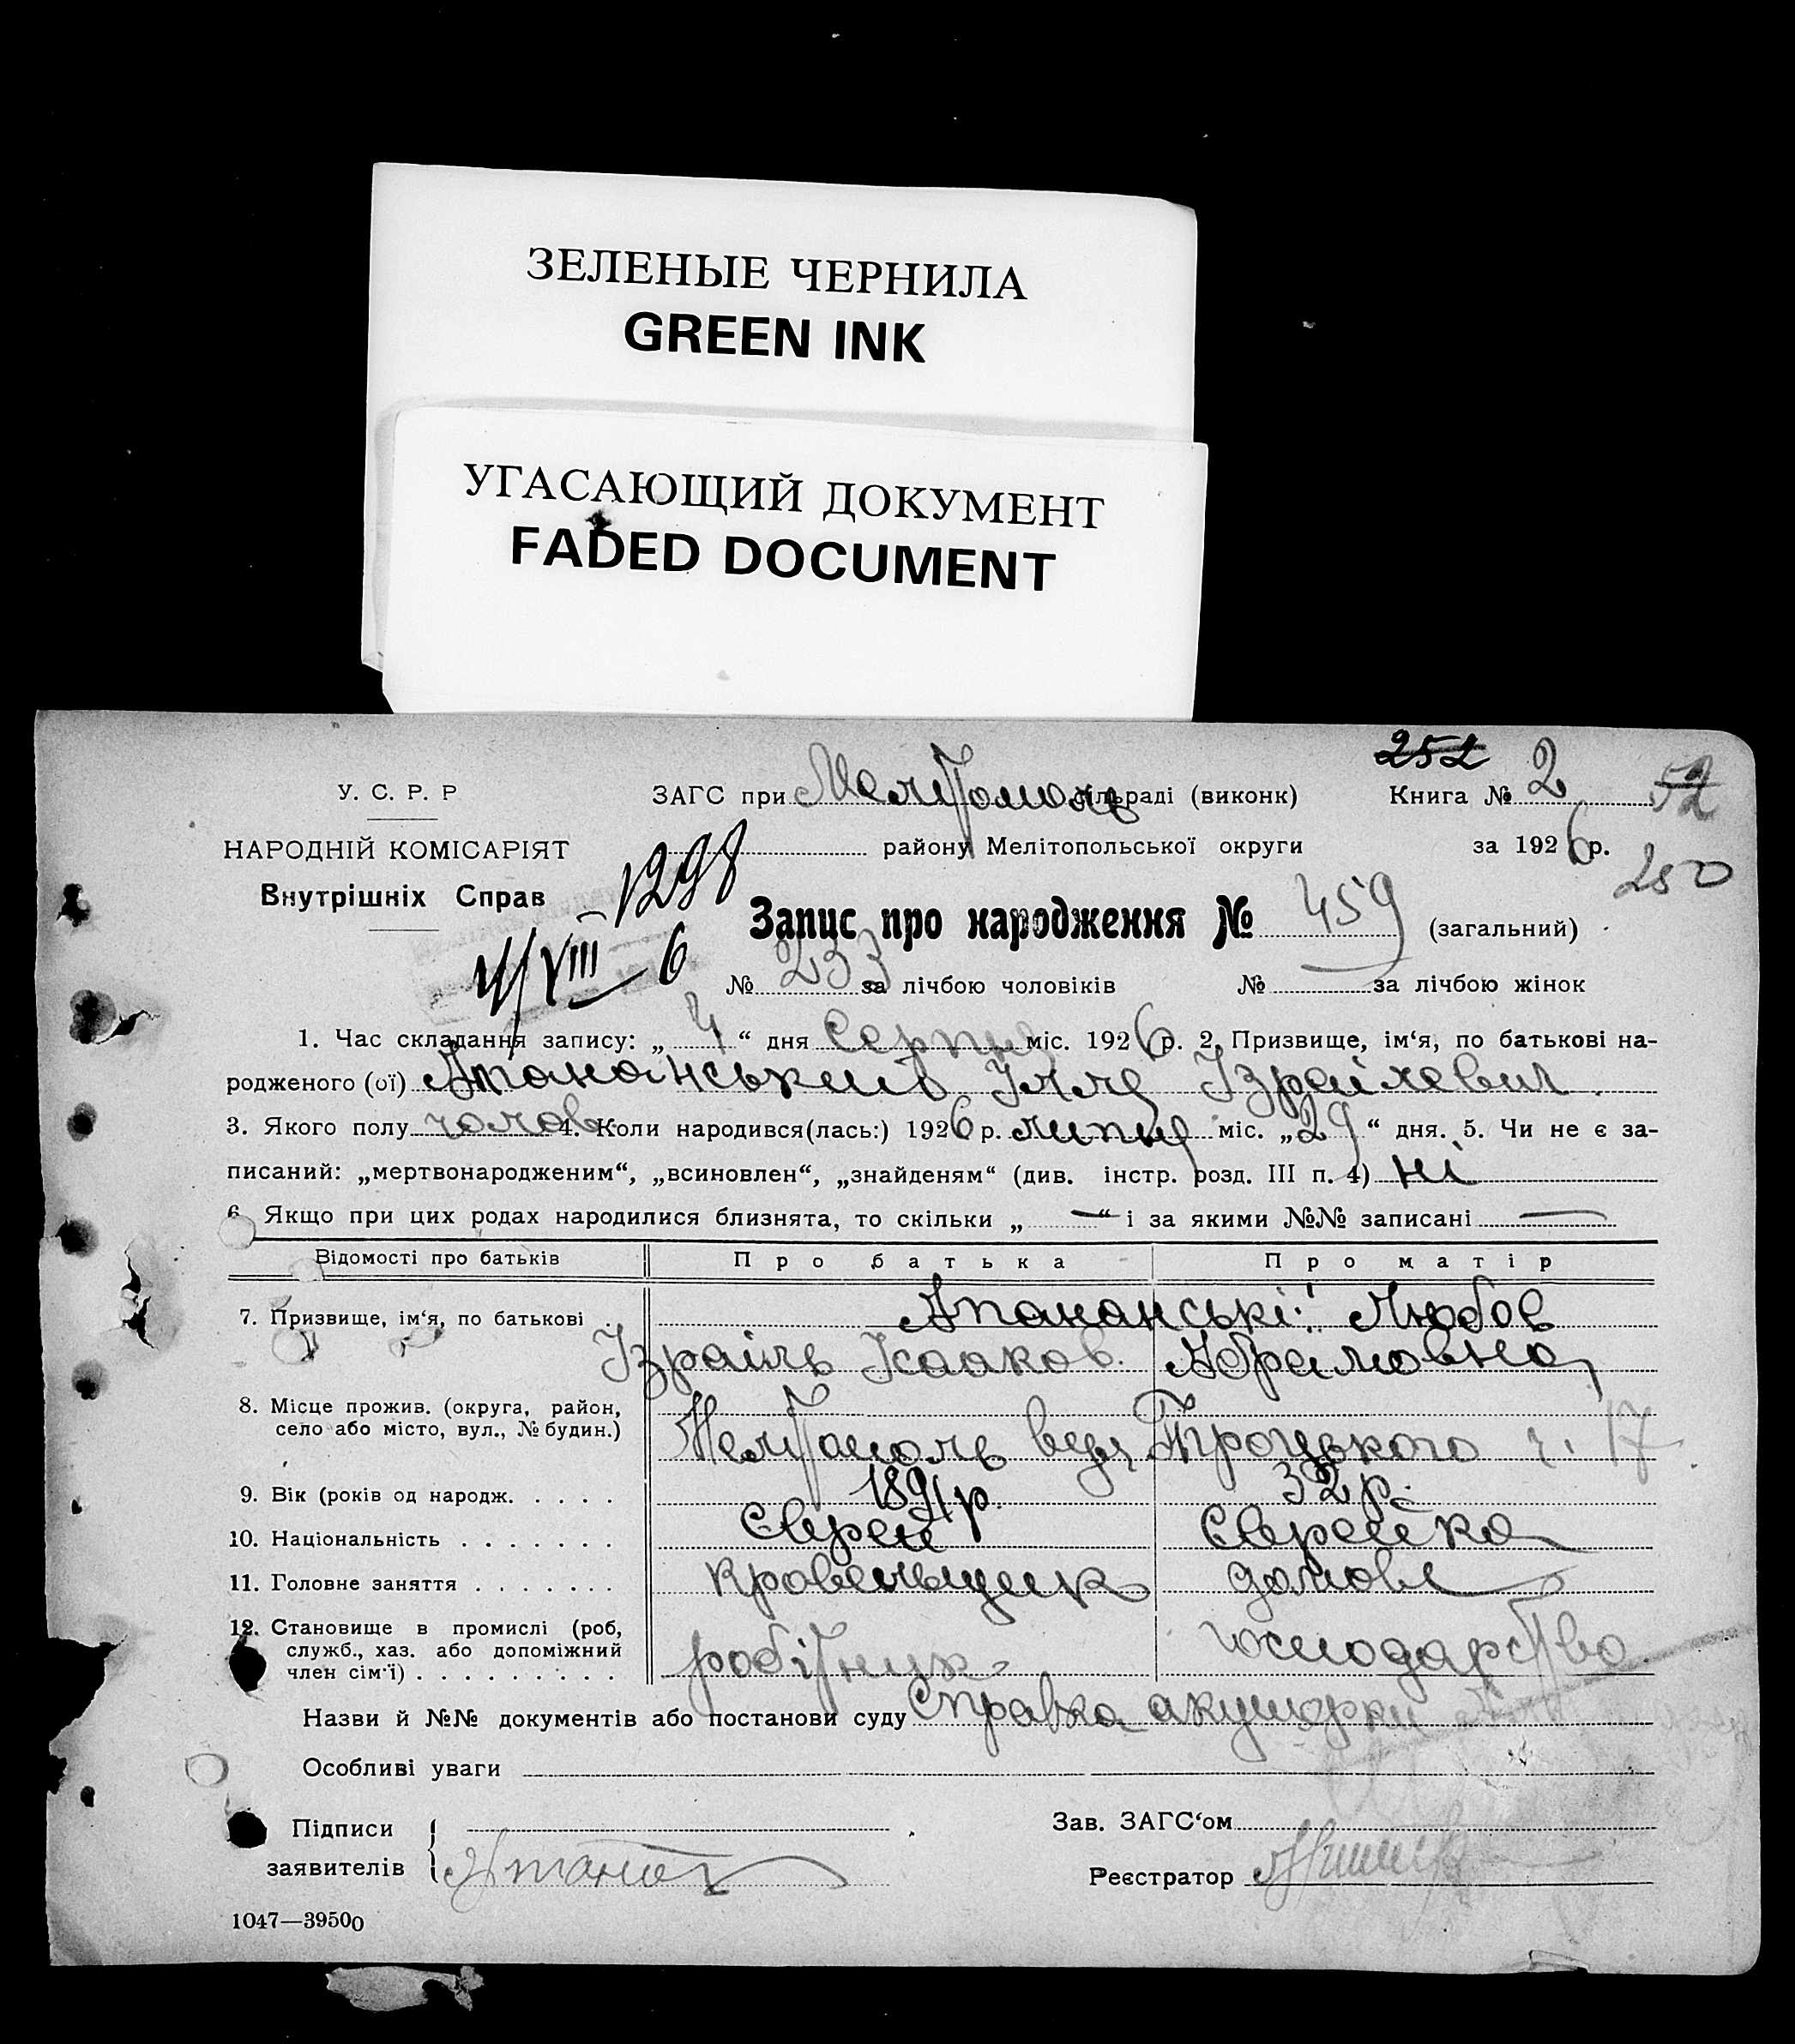 ЗЕЛЕНЫЕ ЧЕРНИЛА
GREEN INK
УГАСАЮЩИЙ ДОКУМЕНТ
FADED DOCUMENT
252
У. С. Р. Р ЗАГС при Мелітополь сільраді (виконк) Книга № 2 52
НАРОДНІЙ КОМІСАРІЯТ району Мелітопольської округи за 1926 р.
250
Внутрішніх Справ 1298
Запис про народження № 459 (загальний)
4/VIII–6 № 233 за лічбою чоловіків № за лічбою жінок
1. Час складання запису: „4“ дня Серпня міс. 1926 р. 2. Призвище, ім‘я, по батькові на-
родженого (ої) Атананський Ілля Ізраілевич
3. Якого полу чолов. 4. Коли народився(лась:) 1926 р. липня міс. „29“ дня. 5. Чи не є за-
писаний: „мертвонародженим“, „всиновлен“, „знайденям“ (див. інстр. розд. III п. 4) ні
6. Якщо при цих родах народилися близнята, то скільки „—“ і за якими №№ записані —
Відомості про батьків Про батька Про матір
7. Призвище, ім‘я, по батькові Атананські: Любов
Ізраіль Ісааков. Абрамовна
8. Місце прожив. (округа, район,
село або місто, вул., № будин.) Мелітополь вул Троцького ч. 17
9. Вік (років од народж. . . . . 1891 р. 32 р.
10. Національність . . . . . . . Єврей Єврейка
11. Головне заняття . . . . . . . кровельщик домове
12. Становище в промислі (роб,
служб., хаз. або допоміжний
член сім‘ї) . . . . . . . . . робітник господарство
Назви й №№ документів або постанови суду Справка акушорки
Особливі уваги
Підписи Зав. ЗАГС‘ом
заявителів Реєстратор
1047—39500